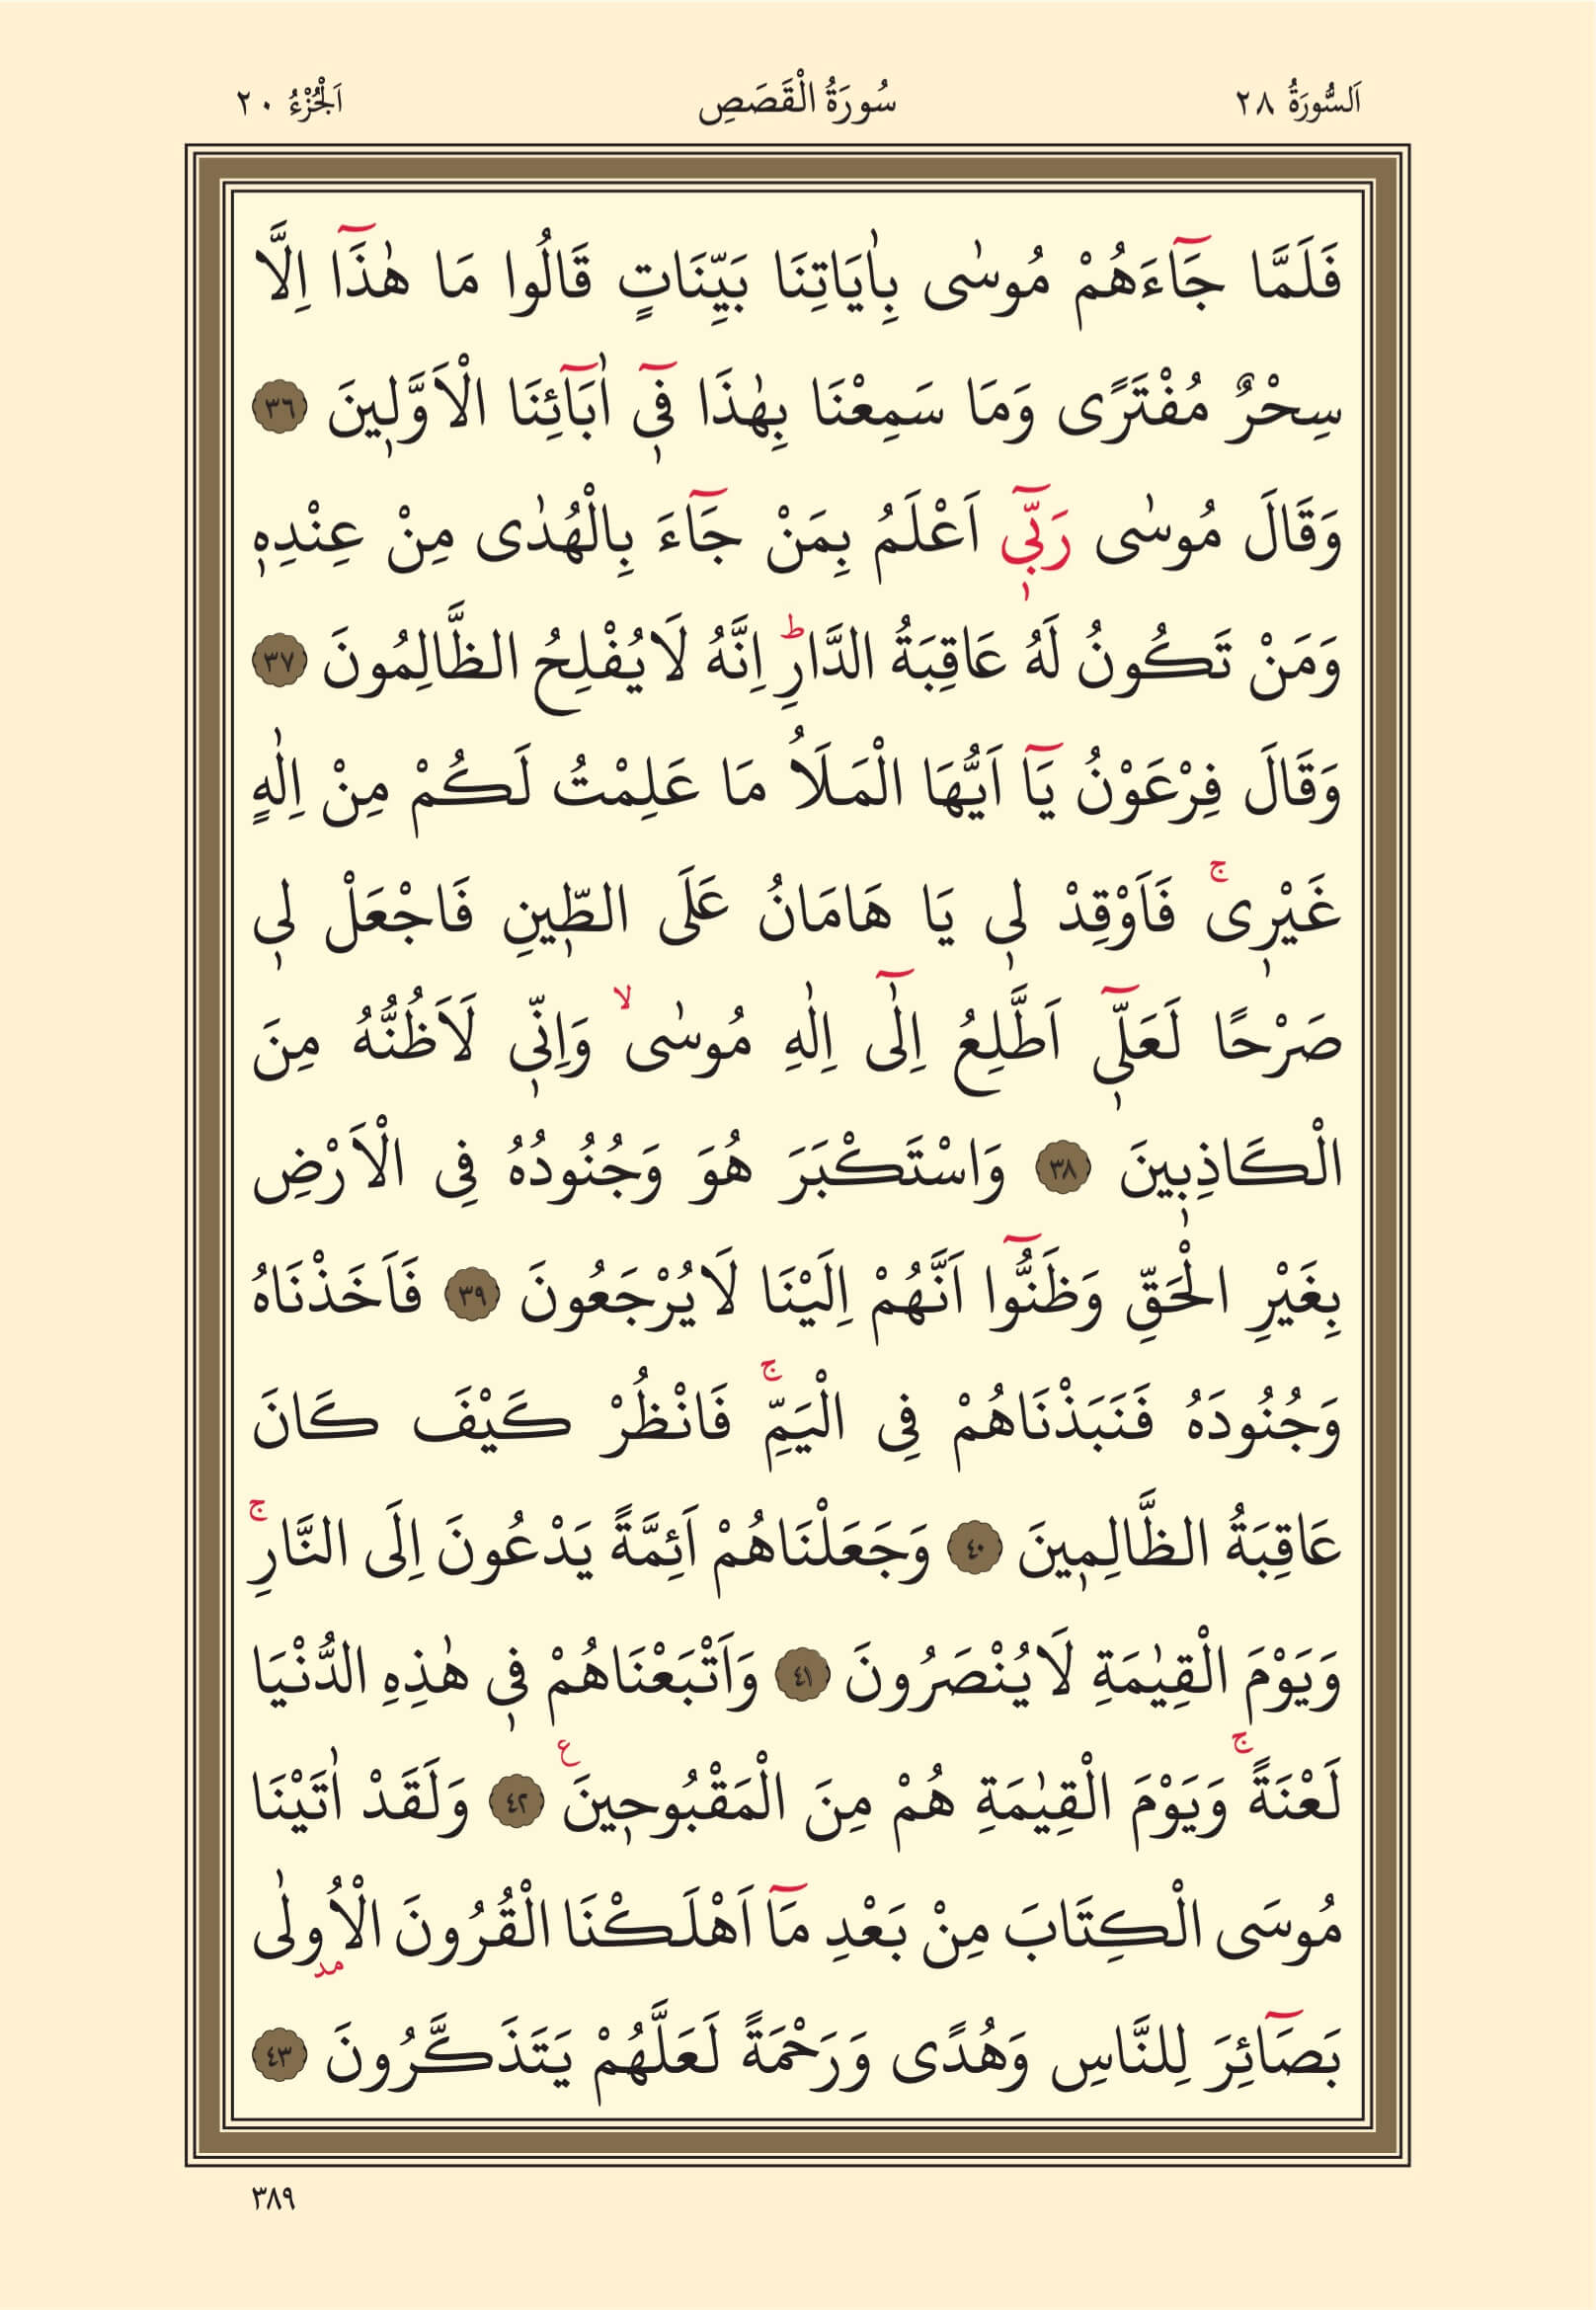 اَلسُّورَةُ ٢٨ سُورَةُ الْقَصَصِ اَلْجُزْءُ ٢٠
فَلَمَّا جَٓاءَهُمْ مُوسٰى بِاٰيَاتِنَا بَيِّنَاتٍ قَالُوا مَا هٰذَٓا اِلَّا
سِحْرٌ مُفْتَرًى وَمَا سَمِعْنَا بِهٰذَا ف۪ٓي اٰبَٓائِنَا الْاَوَّل۪ينَ ٣٦
وَقَالَ مُوسٰى رَبّ۪ٓي اَعْلَمُ بِمَنْ جَٓاءَ بِالْهُدٰى مِنْ عِنْدِه۪
وَمَنْ تَكُونُ لَهُ عَاقِبَةُ الدَّارِۜ اِنَّهُ لَا يُفْلِحُ الظَّالِمُونَ ٣٧
وَقَالَ فِرْعَوْنُ يَٓا اَيُّهَا الْمَلَاُ مَا عَلِمْتُ لَكُمْ مِنْ اِلٰهٍ
غَيْر۪يۚ فَاَوْقِدْ ل۪ي يَا هَامَانُ عَلَى الطّ۪ينِ فَاجْعَلْ ل۪ي
صَرْحًا لَعَلّ۪ٓي اَطَّلِعُ اِلٰٓى اِلٰهِ مُوسٰىۙ وَاِنّ۪ي لَاَظُنُّهُ مِنَ
الْكَاذِب۪ينَ ٣٨ وَاسْتَكْبَرَ هُوَ وَجُنُودُهُ فِي الْاَرْضِ
بِغَيْرِ الْحَقِّ وَظَنُّٓوا اَنَّهُمْ اِلَيْنَا لَا يُرْجَعُونَ ٣٩ فَاَخَذْنَاهُ
وَجُنُودَهُ فَنَبَذْنَاهُمْ فِي الْيَمِّۚ فَانْظُرْ كَيْفَ كَانَ
عَاقِبَةُ الظَّالِم۪ينَ ٤٠ وَجَعَلْنَاهُمْ اَئِمَّةً يَدْعُونَ اِلَى النَّارِۚ
وَيَوْمَ الْقِيٰمَةِ لَا يُنْصَرُونَ ٤١ وَاَتْبَعْنَاهُمْ ف۪ي هٰذِهِ الدُّنْيَا
لَعْنَةًۚ وَيَوْمَ الْقِيٰمَةِ هُمْ مِنَ الْمَقْبُوح۪ينَ ع ٤٢ وَلَقَدْ اٰتَيْنَا
مُوسَى الْكِتَابَ مِنْ بَعْدِ مَٓا اَهْلَكْنَا الْقُرُونَ الْاُو۫لٰى
بَصَٓائِرَ لِلنَّاسِ وَهُدًى وَرَحْمَةً لَعَلَّهُمْ يَتَذَكَّرُونَ ٤٣
٣٨٩